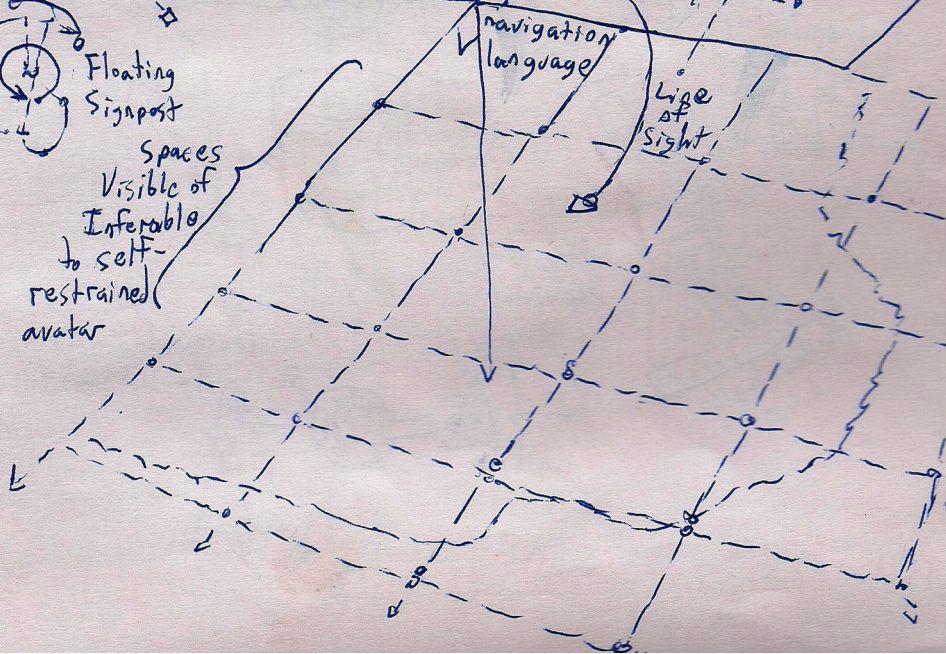 Floating
Signpost
Spaces
Visible of
Inferable
to self-
restrained
avatar
navigation
language
Line
of
Sight